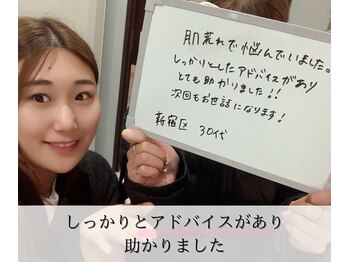 肌荒れで悩んでいました。
しっかりとしたアドバイスがあり
とても助かりました!!
次回もお世話になります!
新宿区 30代
しっかりとアドバイスがあり
助かりました